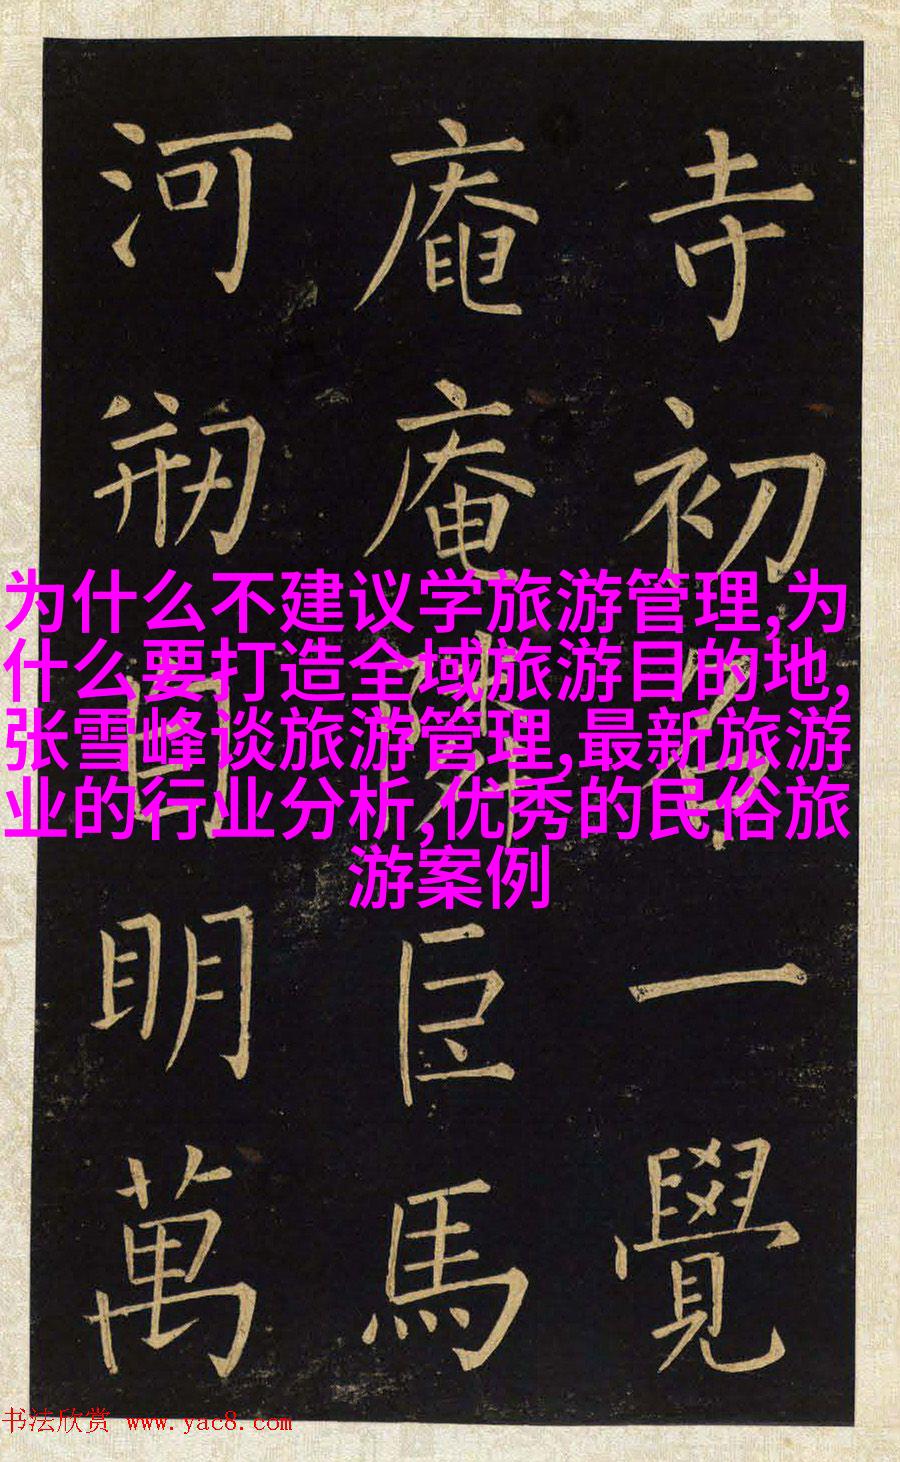 寺初名一覺
庵庵隣臣馬
河刱自明萬
为什么不建议学旅游管理,为
什么要打造全域旅游目的地,
张雪峰谈旅游管理,最新旅游
业的行业分析,优秀的民俗旅
游案例
书法欣赏 www.yac8.com